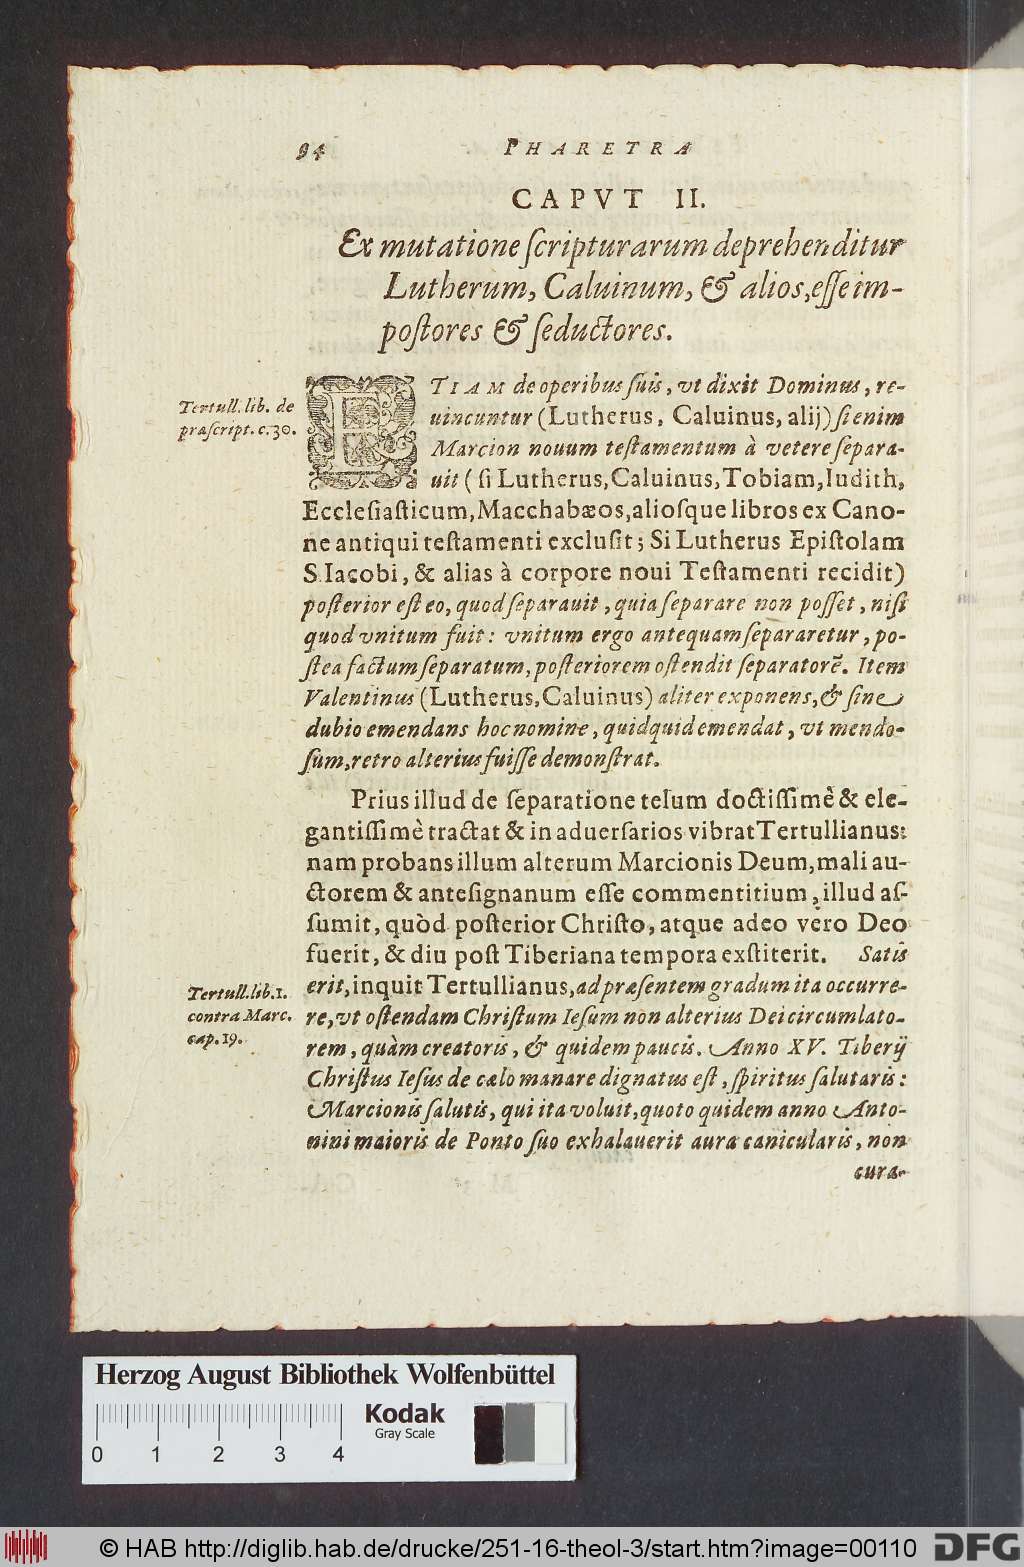 94 PHARETRA
CAPVT II.
Ex mutatione ſcripturarum deprehenditur
Lutherum, Caluinum, & alios, eſſe im-
poſtores & ſeductores.
Tertull. lib. de
præſcript. c. 30.
ETIAM de operibus ſuis, vt dixit Dominus, re-
uincuntur (Lutherus, Caluinus, alij) ſi enim
Marcion nouum teſtamentum à vetere ſepara-
uit (ſi Lutherus, Caluinus, Tobiam, Iudith,
Eccleſiaſticum, Macchabæos, alioſque libros ex Cano-
ne antiqui teſtamenti excluſit; Si Lutherus Epiſtolam
S. Iacobi, & alias à corpore noui Teſtamenti recidit)
poſterior eſt eo, quod ſeparauit, quia ſeparare non poſſet, niſi
quod vnitum fuit: vnitum ergo antequam ſepararetur, po-
ſtea factum ſeparatum, poſteriorem oſtendit ſeparatorē. Item
Valentinus (Lutherus, Caluinus) aliter exponens, & ſine
dubio emendans hoc nomine, quidquid emendat, vt mendo-
ſum, retro alterius fuiſſe demonſtrat.
Prius illud de ſeparatione telum doctiſſimè & ele-
gantiſſimè tractat & in aduerſarios vibrat Tertullianus:
nam probans illum alterum Marcionis Deum, mali au-
ctorem & anteſignanum eſſe commentitium, illud aſ-
ſumit, quòd poſterior Chriſto, atque adeo vero Deo
fuerit, & diu poſt Tiberiana tempora exſtiterit. Satis
erit, inquit Tertullianus, ad præſentem gradum ita occurre-
re, vt oſtendam Chriſtum Ieſum non alterius Dei circumlato-
rem, quàm creatoris, & quidem paucis. Anno XV. Tiberij
Chriſtus Ieſus de cælo manare dignatus eſt, ſpiritus ſalutaris:
Marcionis ſalutis, qui ita voluit, quoto quidem anno Anto-
nini maioris de Ponto ſuo exhalauerit aura canicularis, non
cura-
Tertull. lib. 1.
contra Marc.
cap. 19.
Herzog August Bibliothek Wolfenbüttel
Kodak
Gray Scale
0 1 2 3 4
© HAB http://diglib.hab.de/drucke/251-16-theol-3/start.htm?image=00110
DFG